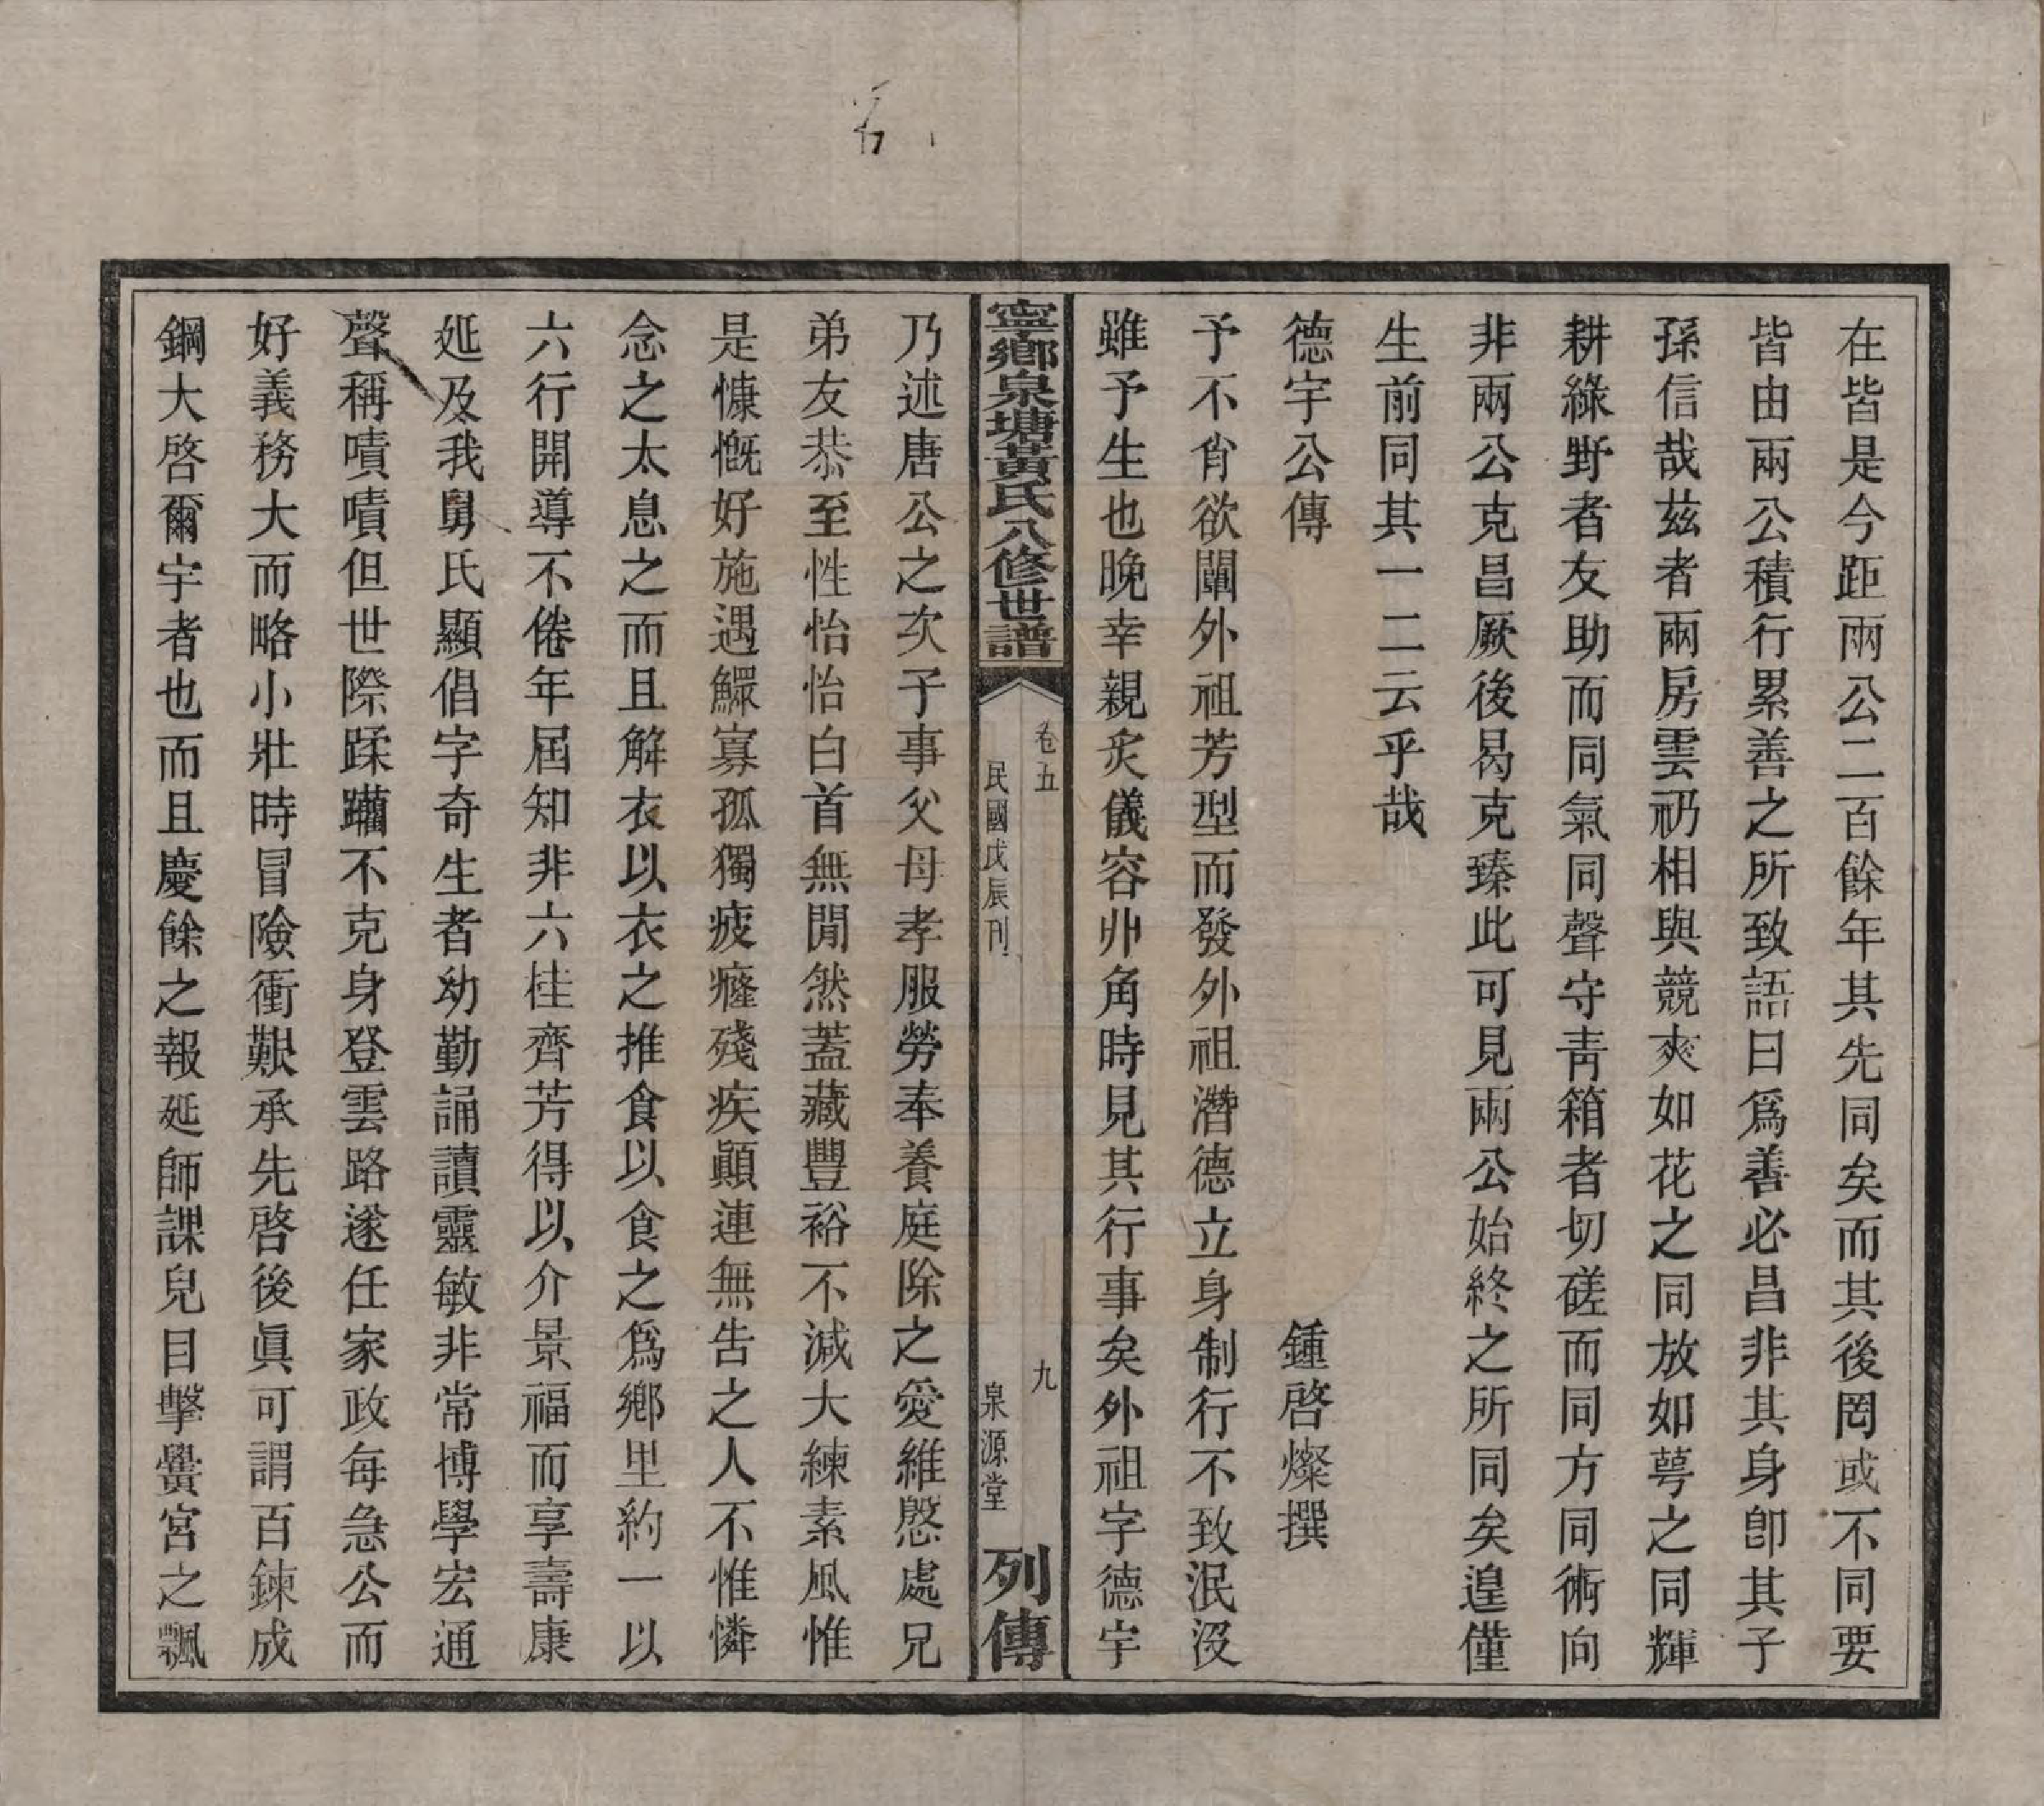 在皆是今距兩公二百餘年其先同矣而其後罔或不同要
皆由兩公積行累善之所致語曰爲善必昌非其身卽其子
孫信哉茲者兩房雲礽相與競爽如花之同放如萼之同輝
耕綠野者友助而同氣同聲守靑箱者切磋而同方同術向
非兩公克昌厥後曷克臻此可見兩公始終之所同矣遑僅
生前同其一二云乎哉
德宇公傳
鍾啓燦撰
予不肖欲闡外祖芳型而發外祖潛德立身制行不致泯沒
雖予生也晚幸親炙儀容丱角時見其行事矣外祖字德宇
寧鄉泉塘黃氏八修世譜
卷五
民國戊辰刊
九
泉源堂
列傳
乃述唐公之次子事父母孝服勞奉養庭除之愛維慇處兄
弟友恭至性怡怡白首無閒然蓋藏豐裕不減大練素風惟
是慷慨好施遇鰥寡孤獨疲癃殘疾顚連無告之人不惟憐
念之太息之而且解衣以衣之推食以食之爲鄉里約一以
六行開導不倦年屆知非六桂齊芳得以介景福而享壽康
延及我舅氏顯倡字奇生者幼勤誦讀靈敏非常博學宏通
聲稱嘖嘖但世際蹂躪不克身登雲路遂任家政每急公而
好義務大而略小壯時冒險衝艱承先啓後眞可謂百鍊成
鋼大啓爾宇者也而且慶餘之報延師課兒目擊黌宮之飄